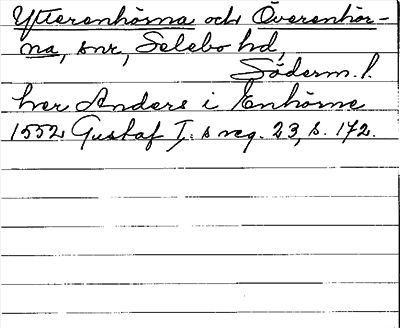 Ytterenhörna och Överenhör-
na, snr, Selebo hd,
Söderm. l.
her Anders i Enhörne
1552 Gustaf I:s reg. 23, s. 172.